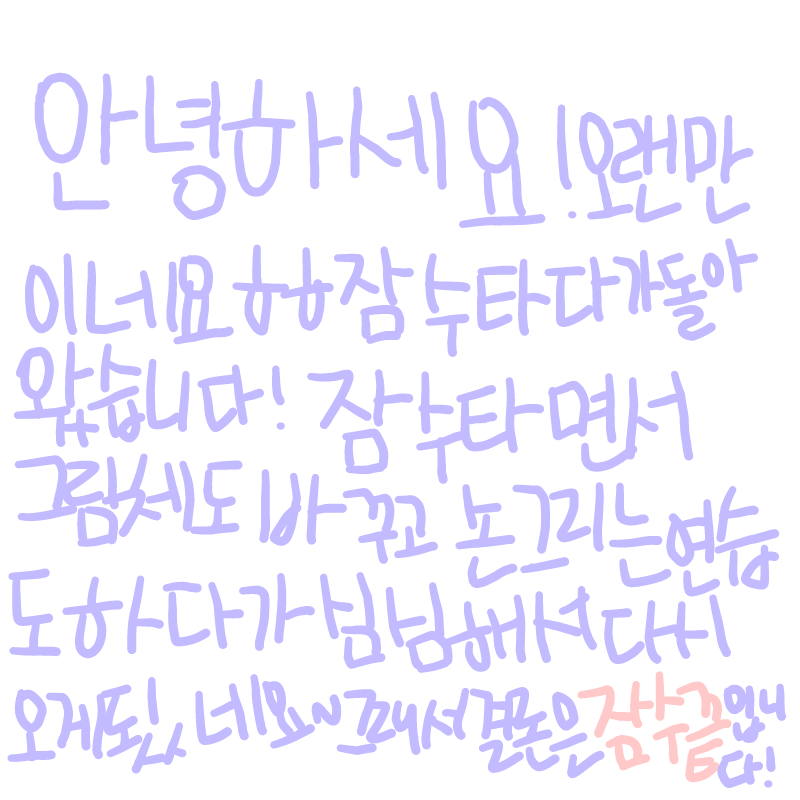 안녕하세요! 오랜만
이네요 ㅎㅎ 잠수타다가 돌아
왔습니다! 잠수타면서
그림체도 바꾸고 손그리는 연습
도 하다가 심심해서 다시
오게됬네요~ 그래서 결론은 잠수끝입니
다!